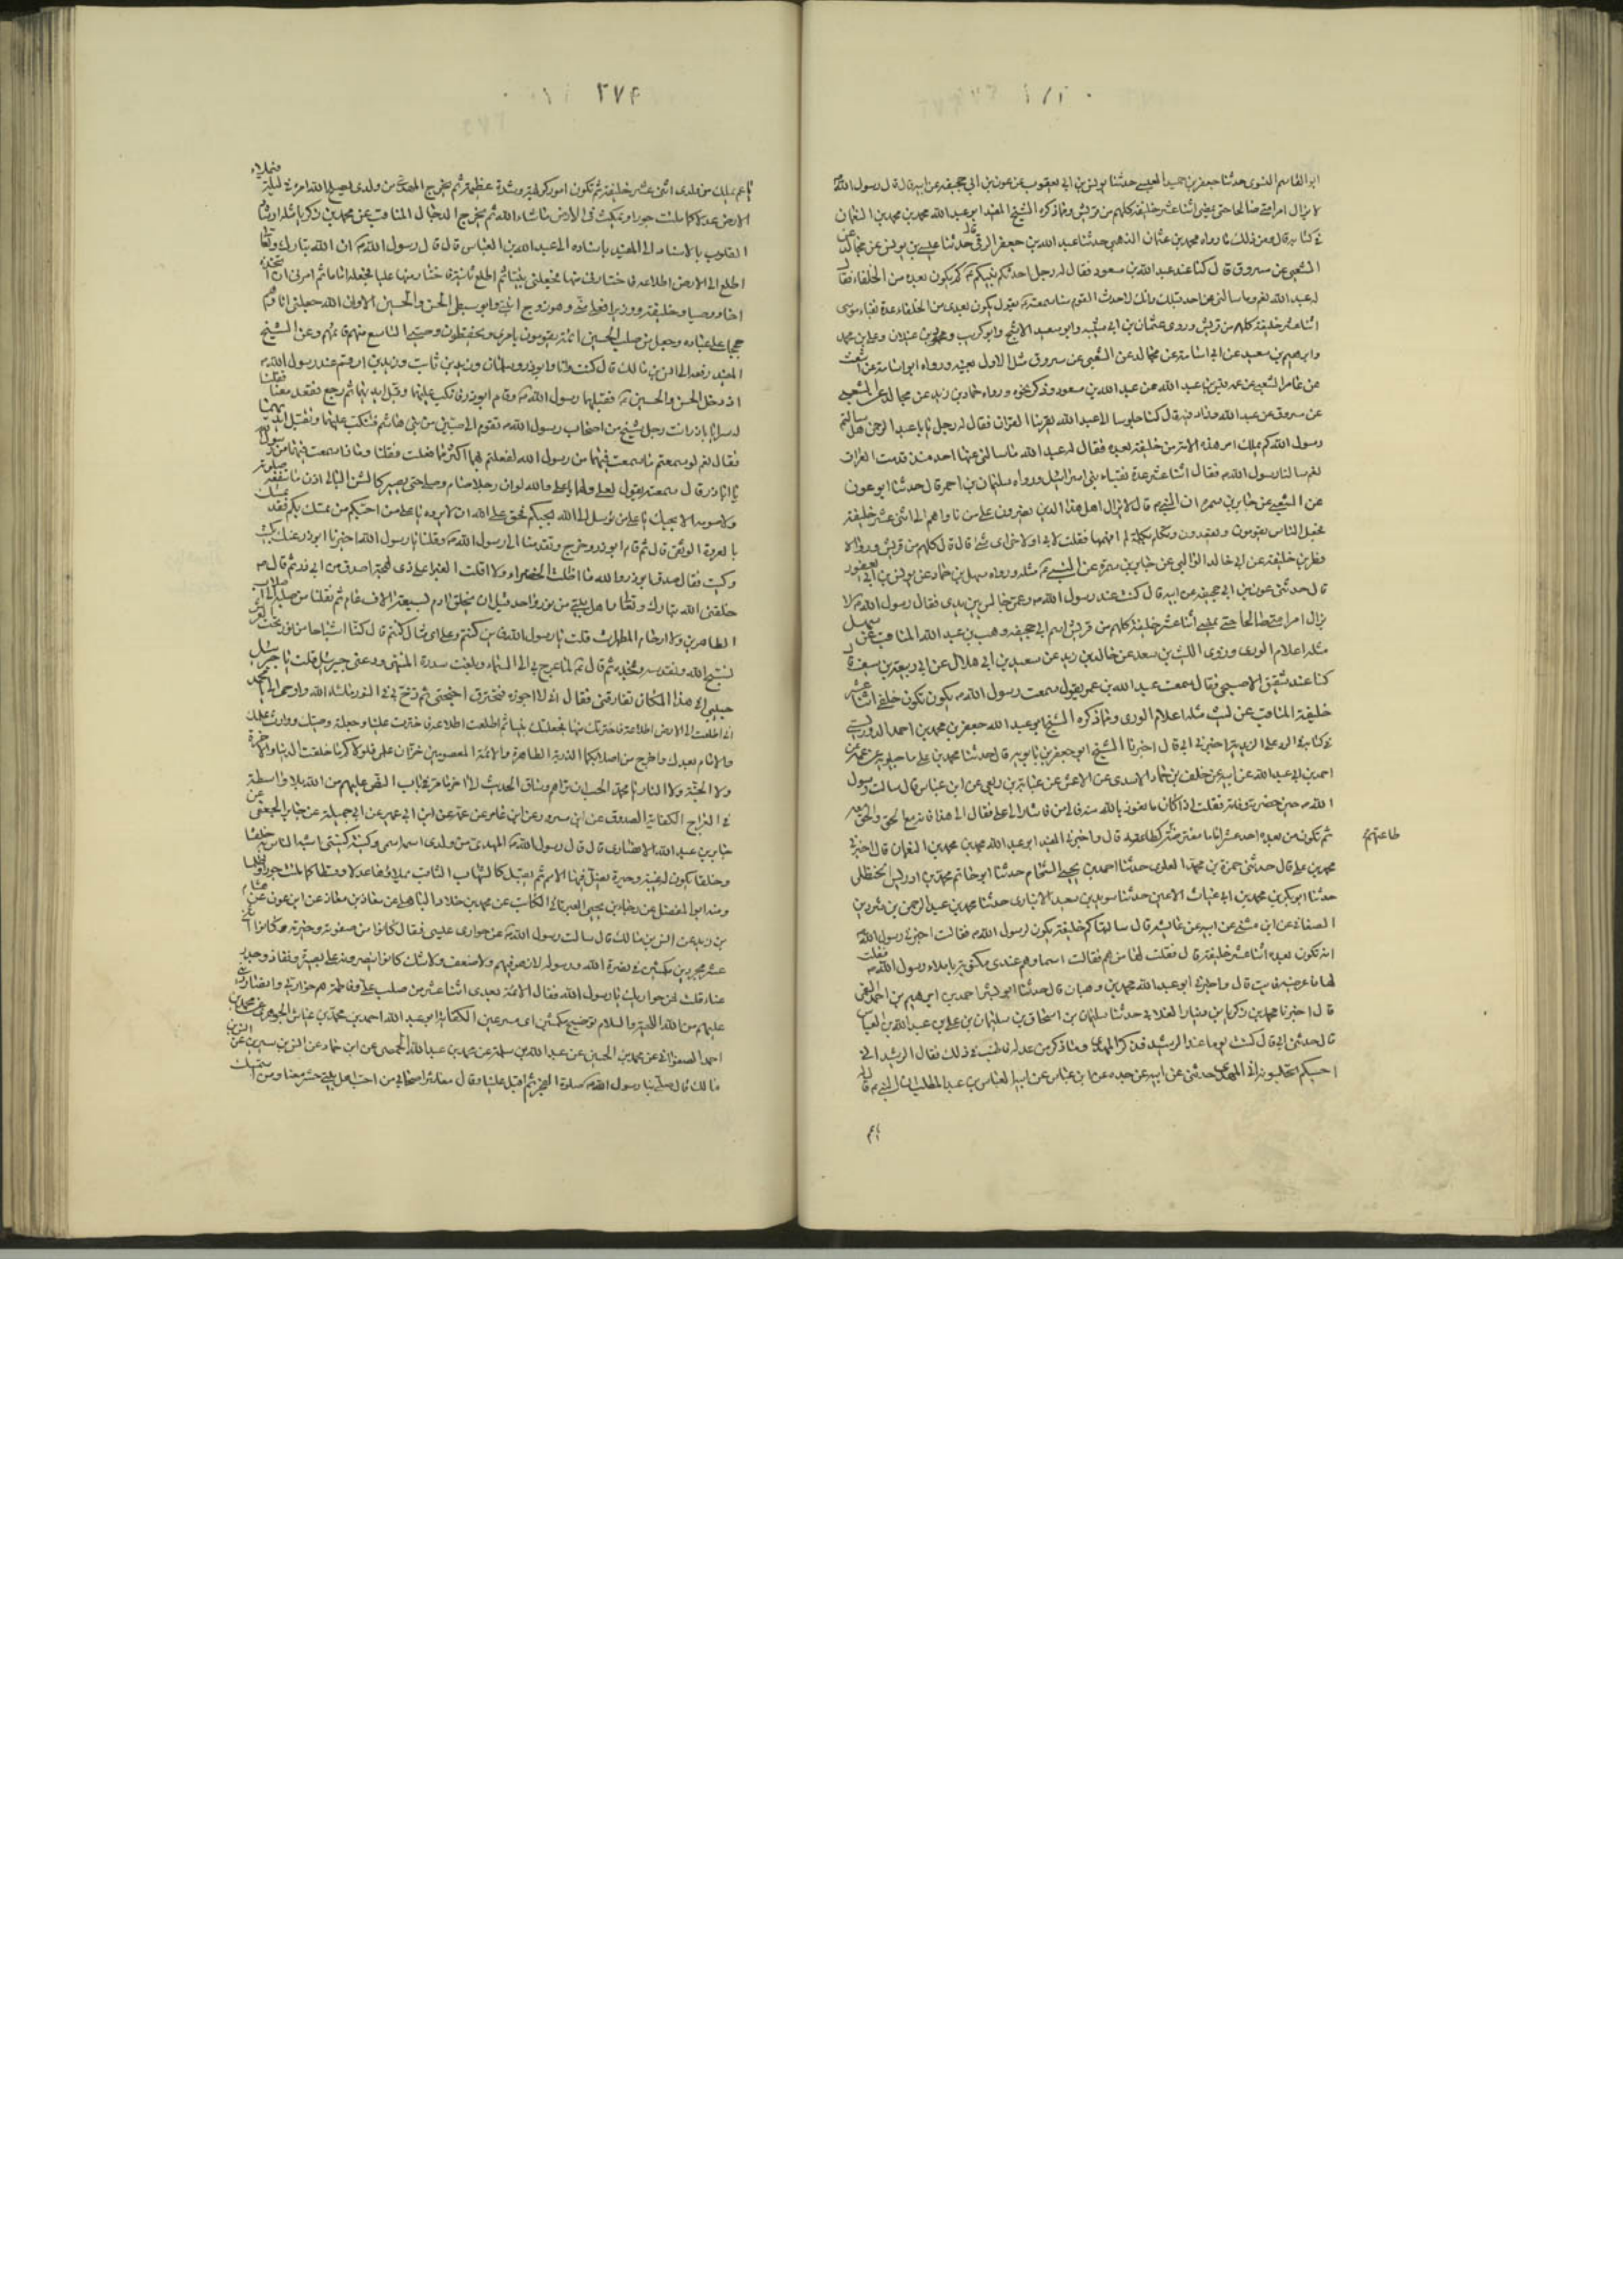 ابو القاسم البغوى حدثنا جعفر بن حميد العبسى حدثنا يونس بن ابى يعقوب عن عون بن ابى جحيفه عن ابيه قال قال رسول الله
لا يزال امر امتى صالحا حتى يمضى اثنا عشر خليفة كلهم من قريش ومما ذكره الشيخ المفيد ابو عبد الله محمد بن محمد بن النعمان
فى كتابه قال ومن ذلك ما رواه محمد بن عثمان الذهبى حدثنا عبد الله بن جعفر الرقى قال حدثنا عيسى بن يونس عن مجالد عن
الشعبى عن مسروق قال كنا عند عبد الله بن مسعود فقال له رجل احدثكم نبيكم كم يكون بعده من الخلفاء فقال
له عبد الله نعم وما سالنى عنها احد قبلك وانك لاحدث القوم سنا سمعته يقول يكون بعدى من الخلفاء عدة نقباء موسى
اثنا عشر خليفة كلهم من قريش وروى عثمان بن ابى شيبه وابو سعيد الاشج وابو كريب ومحمود بن غيلان وعلى بن محمد
وابرهيم بن سعيد عن ابى اسامة عن مجالد عن الشعبى عن مسروق مثل الاول بعينه ورواه ابو اسامة عن اشعث
عن عامر الشعبى عن عمه قيس بن عبد الله عن عبد الله بن مسعود وذكر نحوه ورواه حماد بن زيد عن مجالد عن الشعبى
عن مسروق عن عبد الله وزاد فيه قال كنا جلوسا الى عبد الله يقرينا القران فقال له رجل يا با عبد الرحمن هل سالتم
رسول الله كم يملك امر هذه الامة من خليفة بعده فقال له عبد الله ما سالنى عنها احد منذ قدمت العراق
نعم سالنا رسول الله فقال اثنا عشر عدة نقباء بنى اسرائيل ورواه سليمان بن احمر قال حدثنا ابو عون
عن الشعبى عن جابر بن سمره ان النبى قال لا يزال اهل هذا الدين ينصرون على من ناواهم الى اثنى عشر خليفة
فجعل الناس يقومون ويقعدون وتكلم بكلمة لم افهمها فقلت لابى او لاخى اى شئ قال قال كلهم من قريش ورواه
فطر بن خليفة عن ابى خالد الوالبى عن جابر بن سمرة عن النبى مثله ورواه سهل بن حماد عن يونس بن ابى يعفور
قال حدثنى عون بن ابى جحيفه عن ابيه قال كنت عند رسول الله وعمى جالس بين يدى فقال رسول الله لا
يزال امر امتى صالحا حتى يمضى اثنا عشر خليفة كلهم من قريش اسم ابى جحيفه وهب بن عبد الله المناقب عن سهل
مثله اعلام الورى وروى الليث بن سعد عن خالد بن زيد عن سعيد بن ابى هلال عن ابى ربيعة بن سيف قال
كنا عند شقيق الاصبحى فقال سمعت عبد الله بن عمر يقول سمعت رسول الله يقول يكون خلفى اثنا عشر
خليفة المناقب عن ليث مثله اعلام الورى ومما ذكره الشيخ ابو عبد الله جعفر بن محمد بن احمد الدوريستى
فى كتابه الرد على الزيدية اخبرنى ابى قال اخبرنا الشيخ ابو جعفر بن بابويه قال حدثنا محمد بن على ماجيلويه عن عمه عن
احمد بن ابى عبد الله عن ابيه عن خلف بن حماد الاسدى عن الاعمش عن عباية بن ربعى عن ابن عباس قال سالت رسول
الله حين حضرته وفاته فقلت اذا كان ما نعوذ بالله منه فالى من فاشار الى على فقال الى هذا فانه مع الحق والحق معه
ثم تكون من بعده احد عشر اماما مفترضة كطاعته قال واخبرنى المفيد ابو عبد الله محمد بن محمد بن النعمان قال اخبرنى
طاعتهم
محمد بن على قال حدثنى حمزة بن محمد العلوى حدثنا احمد بن يحيى الشحام حدثنا ابو حاتم محمد بن ادريس الحنظلى
حدثنا ابو بكر بن محمد بن ابى غياث الاعين حدثنا سويد بن سعيد الانبارى حدثنا محمد بن عبد الرحمن بن شردين
الصنعانى عن ابن مثنى عن ابيه عن عائشة قال سالتها كم خليفة يكون لرسول الله فقالت اخبرنى رسول الله
انه تكون بعده اثنا عشر خليفة قال فقلت لها من هم فقالت اسماوهم عندى مكتوبة باملاء رسول الله فقلت
لها فاعرضيه فابت قال واخبرنا ابو عبد الله محمد بن وهبان قال حدثنا ابو بشر احمد بن ابرهيم بن احمد العمى
قال اخبرنا محمد بن زكريا بن دينار الغلابى حدثنا سليمان بن اسحاق بن سليمان بن على بن عبد الله بن العباس
قال حدثنى ابى قال كنت يوما عند الرشيد فذكر المهدى وما ذكر من عدله فاطنب فى ذلك فقال الرشيد انى
احسبكم تحسبونه ابى المهدى حدثنى عن ابيه عن جده عن ابن عباس عن ابيه العباس بن عبد المطلب ان النبى قال له
٢٧٤
يا عم يملك من ولدى اثنى عشر خليفة ثم تكون امور كريهة وشدة عظيمة ثم يخرج المهدى من ولدى يصلح الله امره فى ليلة فيملاء
الارض عدلا كما ملئت جورا ويمكث فى الارض ما شاء الله ثم يخرج الدجال المناقب عن محمد بن زكريا مثله
القلوب بالاسناد الى المفيد باسناده الى عبد الله بن العباس قال قال رسول الله ان الله تبارك وتعالى
اطلع الى الارض اطلاعة فاختارنى منها فجعلنى نبيا ثم اطلع ثانية فاختار منها عليا فجعله اماما ثم امرنى ان اتخذه
اخا ووصيا وخليفة ووزيرا فعلى منى وهو زوج ابنتى وابو سبطى الحسن والحسين الا وان الله جعلنى اياهم
حججا على عباده وجعل من صلب الحسين ائمة يقومون بامرى ويحفظون وصيتى التاسع منهم قائمهم وعن الشيخ
المفيد رفعه الى انس بن مالك قال كنت انا وابو ذر وسلمان وزيد بن ثابت وزيد بن ارقم عند رسول الله
اذ دخل الحسن والحسين فقبلهما رسول الله وقام ابو ذر فانكب عليهما وقبل ايديهما ثم رجع فقعد معنا فقلنا
له سرا يا با ذر انت رجل شيخ من اصحاب رسول الله تقوم الى صبيين من بنى هاشم فتنكب عليهما وتقبل ايديهما
فقال نعم لو سمعتم ما سمعت فيهما من رسول الله لفعلتم بهما اكثر مما فعلت فقلنا وما ذا سمعت فيهما من رسول
يا ابا ذر قال سمعته يقول لعلى ولهما يا على والله لو ان رجلا صام وصلى حتى يصير كالشن البالى اذن ما نفعه صلوته
ولا صومه الا بحبك يا على من توسل الى الله بحبكم فحق على الله ان لا يرده يا على من احبكم من تمسك بكم فقد تمسك
بالعروة الوثقى قال ثم قام ابو ذر وخرج وتقدمنا الى رسول الله وقلنا يا رسول الله اخبرنا ابو ذر عنك بكيت
وكيت فقال صدق ابو ذر والله ما اظلت الخضراء ولا اقلت الغبراء على ذى لهجة اصدق من ابى ذر ثم قال
خلقنى الله تبارك وتعالى واهل بيتى من نور واحد قبل ان يخلق ادم بسبعة الاف عام ثم نقلنا من صلبه الى اصلاب
الطاهرين ولا ارحام المطهرات قلت يا رسول الله فاين كنتم وعلى اى مثال كنتم قال كنا اشباحا من نور تحت العرش
نسبح الله ونقدسه ونمجده ثم قال لما عرج بى الى السماء وبلغت سدرة المنتهى ودعنى جبرئيل فقلت يا جبرئيل
حبيبى فى هذا المكان تفارقنى فقال انى لا اجوزه فتحترق اجنحتى ثم زخ بى فى النور ما شاء الله واوحى الى يا محمد
انى اطلعت الى الارض اطلاعة فاخترتك منها فجعلتك نبيا ثم اطلعت اطلاعة فاخترت عليا وجعلته وصيك ووارث علمك
والامام بعدك واخرج من اصلابكما الذرية الطاهرة والائمة المعصومين خزان علمى فلولاكم ما خلقت الدنيا ولا الاخرة
ولا الجنة ولا النار يا محمد اتحب ان تراهم وساق الحديث الى اخر ما مر فى باب النص عليهم من الله بلا واسطة
فى المعراج الكفاية الصدوق عن ابن مسرور عن ابن عامر عن عمه عن ابن ابى عمير عن ابى جميلة عن جابر الجعفى عن
جابر بن عبد الله الانصارى قال قال رسول الله المهدى من ولدى اسمه اسمى وكنيته كنيتى اشبه الناس بى خلقا
وخلقا يكون له غيبة وحيرة تضل فيها الامم ثم يقبل كالشهاب الثاقب يملاءها عدلا وقسطا كما ملئت جورا وظلما
ومنه ابو المفضل عن رجاء بن يحيى العبرتائى الكاتب عن محمد بن خلاد الباهلى عن معاذ بن معاذ عن ابن عون عن هشام
بن زيد عن انس بن مالك قال سالت رسول الله عن حوارى عيسى فقال كانوا من صفوته وخيرته وكانوا اثنى
عشر مجردين مكمشين فى نصرة الله ورسوله لا زهو فيهم ولا ضعف ولا شك كانوا ينصرونه على بصيرة ونفاذ وجد
وعناء قلت فمن حواريك يا رسول الله فقال الائمة بعدى اثنا عشر من صلب على وفاطمة هم حواريى وانصار دينى
عليهم من الله التحية والسلام توضيح مكمشين اى مسرعين الكفاية ابو عبد الله احمد بن محمد بن عياش الجوهرى عن محمد بن
احمد الصفوانى عن محمد بن الحسين عن عبد الله بن سلمة عن محمد بن عبد الله الحمصى عن ابن حماد عن انس بن سيرين عن انس بن
مالك قال صلى بنا رسول الله صلوة الفجر ثم اقبل علينا وقال معاشر اصحابى من احب اهل بيتى حشر معنا ومن استمسك